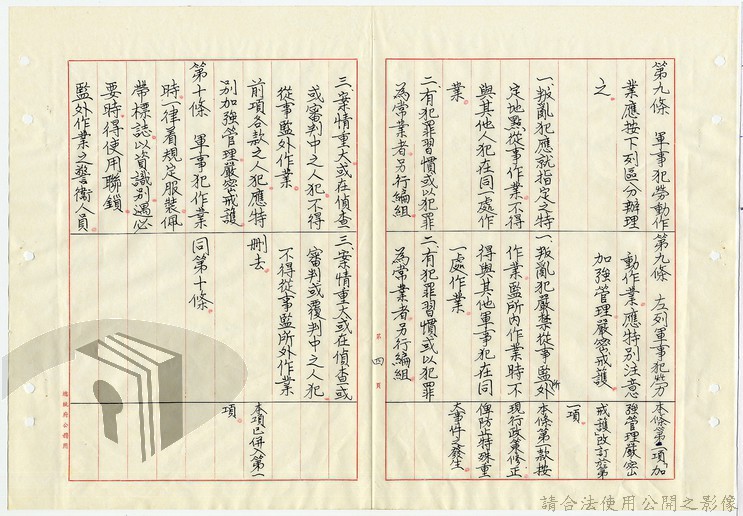 第九條　軍事犯勞動作
業應按下列區分辦理
之
一、叛亂犯應就指定之特
定地點從事作業不得
與其他人犯在同一處作
業
二、有犯罪習慣或以犯罪
為常業者另行編組
三、案情重大或在偵查
或審判中之人犯不得
從事監外作業
前項各款之人犯應特
別加強管理嚴密戒護
第十條　軍事犯作業
時一律着規定服裝佩
帶標誌以資識別遇必
要時得使用聯鎖
監外作業之警衞人員
第九條　左列軍事犯勞
動作業應特別注意
加強管理嚴密戒護
一、叛亂犯嚴禁從事監外所
作業監所內作業時不
得與其他軍事犯在同
一處作業
二、有犯罪習慣或以犯罪
為常業者另行編組
三、案情重大或在偵查或
審判或覆判中之人犯
不得從事監所外作業
刪去
同第十條
本條第一項「加
強管理嚴密
戒護」改訂於第
一項
本條第一款按
現行政策修正
俾防止特殊重
大事件之發生
本項已併入第一
項
第四頁
總統府公務用
請合法使用公開之影像